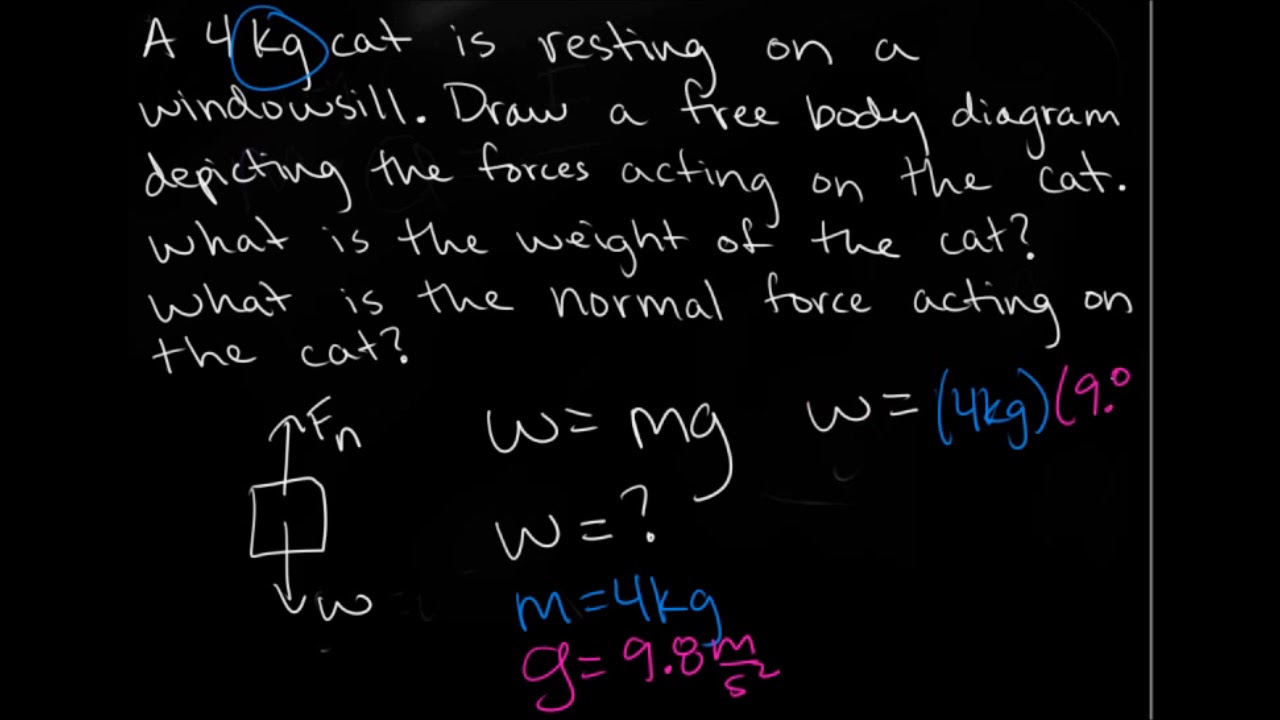 A 4kg cat is resting on a
windowsill. Draw a free body diagram
depicting the forces acting on the cat.
What is the weight of the cat?
What is the normal force acting on
the cat?
Fn
w
w = mg
w = ?
m = 4kg
g = 9.8 m/s²
w = (4kg)(9.